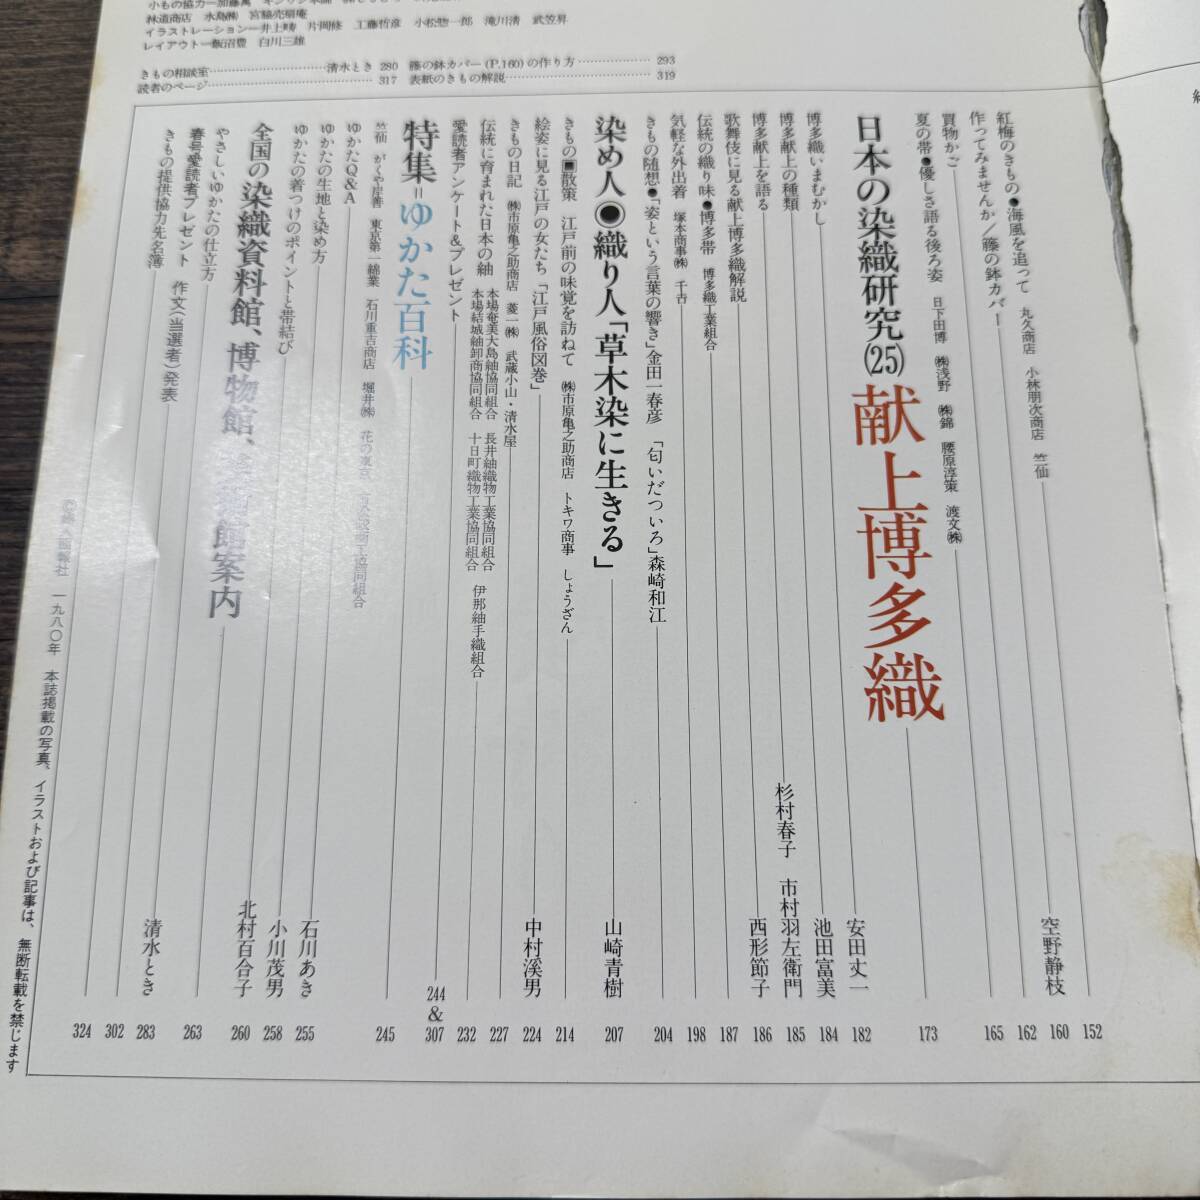 林道商店 水島㈱ 宮脇売扇庵
イラストレーション―井上鋳 片岡修 工藤哲彦 小松惣一郎 滝川清 武笠昇
レイアウト―飯沼豊 白川三雄
きもの相談室 清水とき 280
籐の鉢カバー(P.160)の作り方 293
読者のページ 317
表紙のきもの解説 319
紅梅のきもの●海風を追って 丸久商店 小林朋次商店 竺仙 152
作ってみませんか/籐の鉢カバー 空野静枝 160
買物かご 162
夏の帯●優しさ語る後ろ姿 日下田博 ㈱浅野 ㈱錦 腰原淳策 渡文㈱ 165
日本の染織研究(25) 献上博多織 173
博多織いまむかし 安田丈一 182
博多献上の種類 池田富美 184
博多献上を語る 杉村春子 市村羽左衛門 185
歌舞伎に見る献上博多織解説 西形節子 186
伝統の織り味●博多帯 博多織工業組合 187
気軽な外出着 塚本商事㈱ 千吉 198
きもの随想●「姿という言葉の響き」金田一春彦 「匂いだついろ」森崎和江 204
染め人◉織り人「草木染に生きる」 山崎青樹 207
きもの▣散策 江戸前の味覚を訪ねて ㈱市原亀之助商店 トキワ商事 しょうざん 214
絵姿に見る江戸の女たち「江戸風俗図巻」 中村溪男 224
きもの日記 ㈱市原亀之助商店 菱一㈱ 武蔵小山・清水屋 227
伝統に育まれた日本の紬 本場奄美大島紬協同組合 長井紬織物工業協同組合 本場結城紬卸商協同組合 十日町織物工業協同組合 伊那紬手織組合 232
愛読者アンケート&プレゼント 244&307
特集=ゆかた百科 245
竺仙 がくや岸善 東京第一綿業 石川重吉商店 堀井㈱ 花の東京
ゆかたQ&A
ゆかたの生地と染め方 石川あき 255
ゆかたの着つけのポイントと帯結び 小川茂男 258
全国の染織資料館、博物館、 館案内 北村百合子 260
やさしいゆかたの仕立方 263
春号愛読者プレゼント 作文(当選者)発表 清水とき 283
きもの提供協力先名簿 302
324
©婦人画報社 一九八〇年 本誌掲載の写真、イラストおよび記事は、無断転載を禁じます